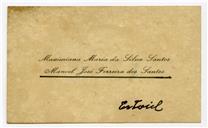 Maximiana Maria da Silva Santos
Manoel José Ferreira dos Santos
Estoril